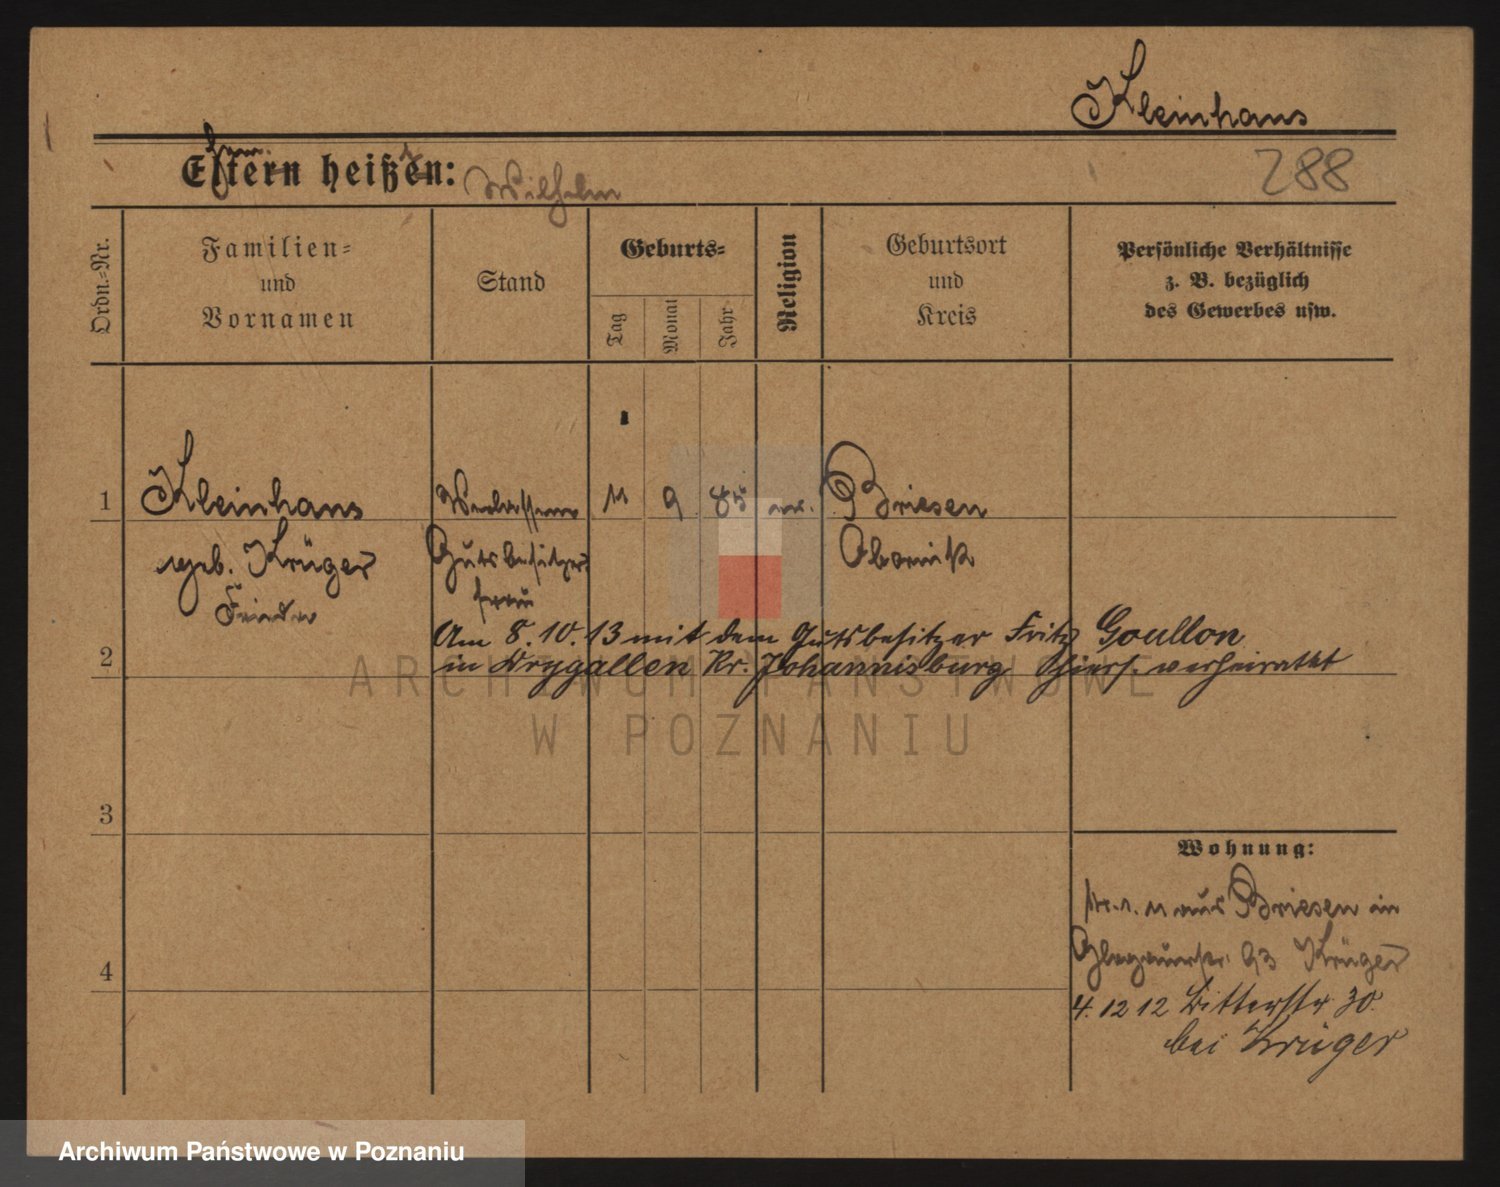 Kleinhans
Eltern heißen: Wilhelm
288
Ordn.-Nr.
Familien-
und
Vornamen
Stand
Geburts-
Tag
Monat
Jahr
Religion
Geburtsort
und
Kreis
Persönliche Verhältnisse
z. B. bezüglich
des Gewerbes usw.
1 Kleinhans 11 9 85 Briesen
geb. Krüger Gutsbesitzer Obornik
Frieda frau
Am 8.10.13 mit dem Gutsbesitzer Fritz Goullon
2 in Drygallen Kr. Johannisburg hiers. verheiratet
ARCHIWUM PAŃSTWOWE
W POZNANIU
3
Wohnung:
aus Briesen in
93 Krüger
4
4.12 12 Ritterstr 30.
bei Krüger
Archiwum Państwowe w Poznaniu